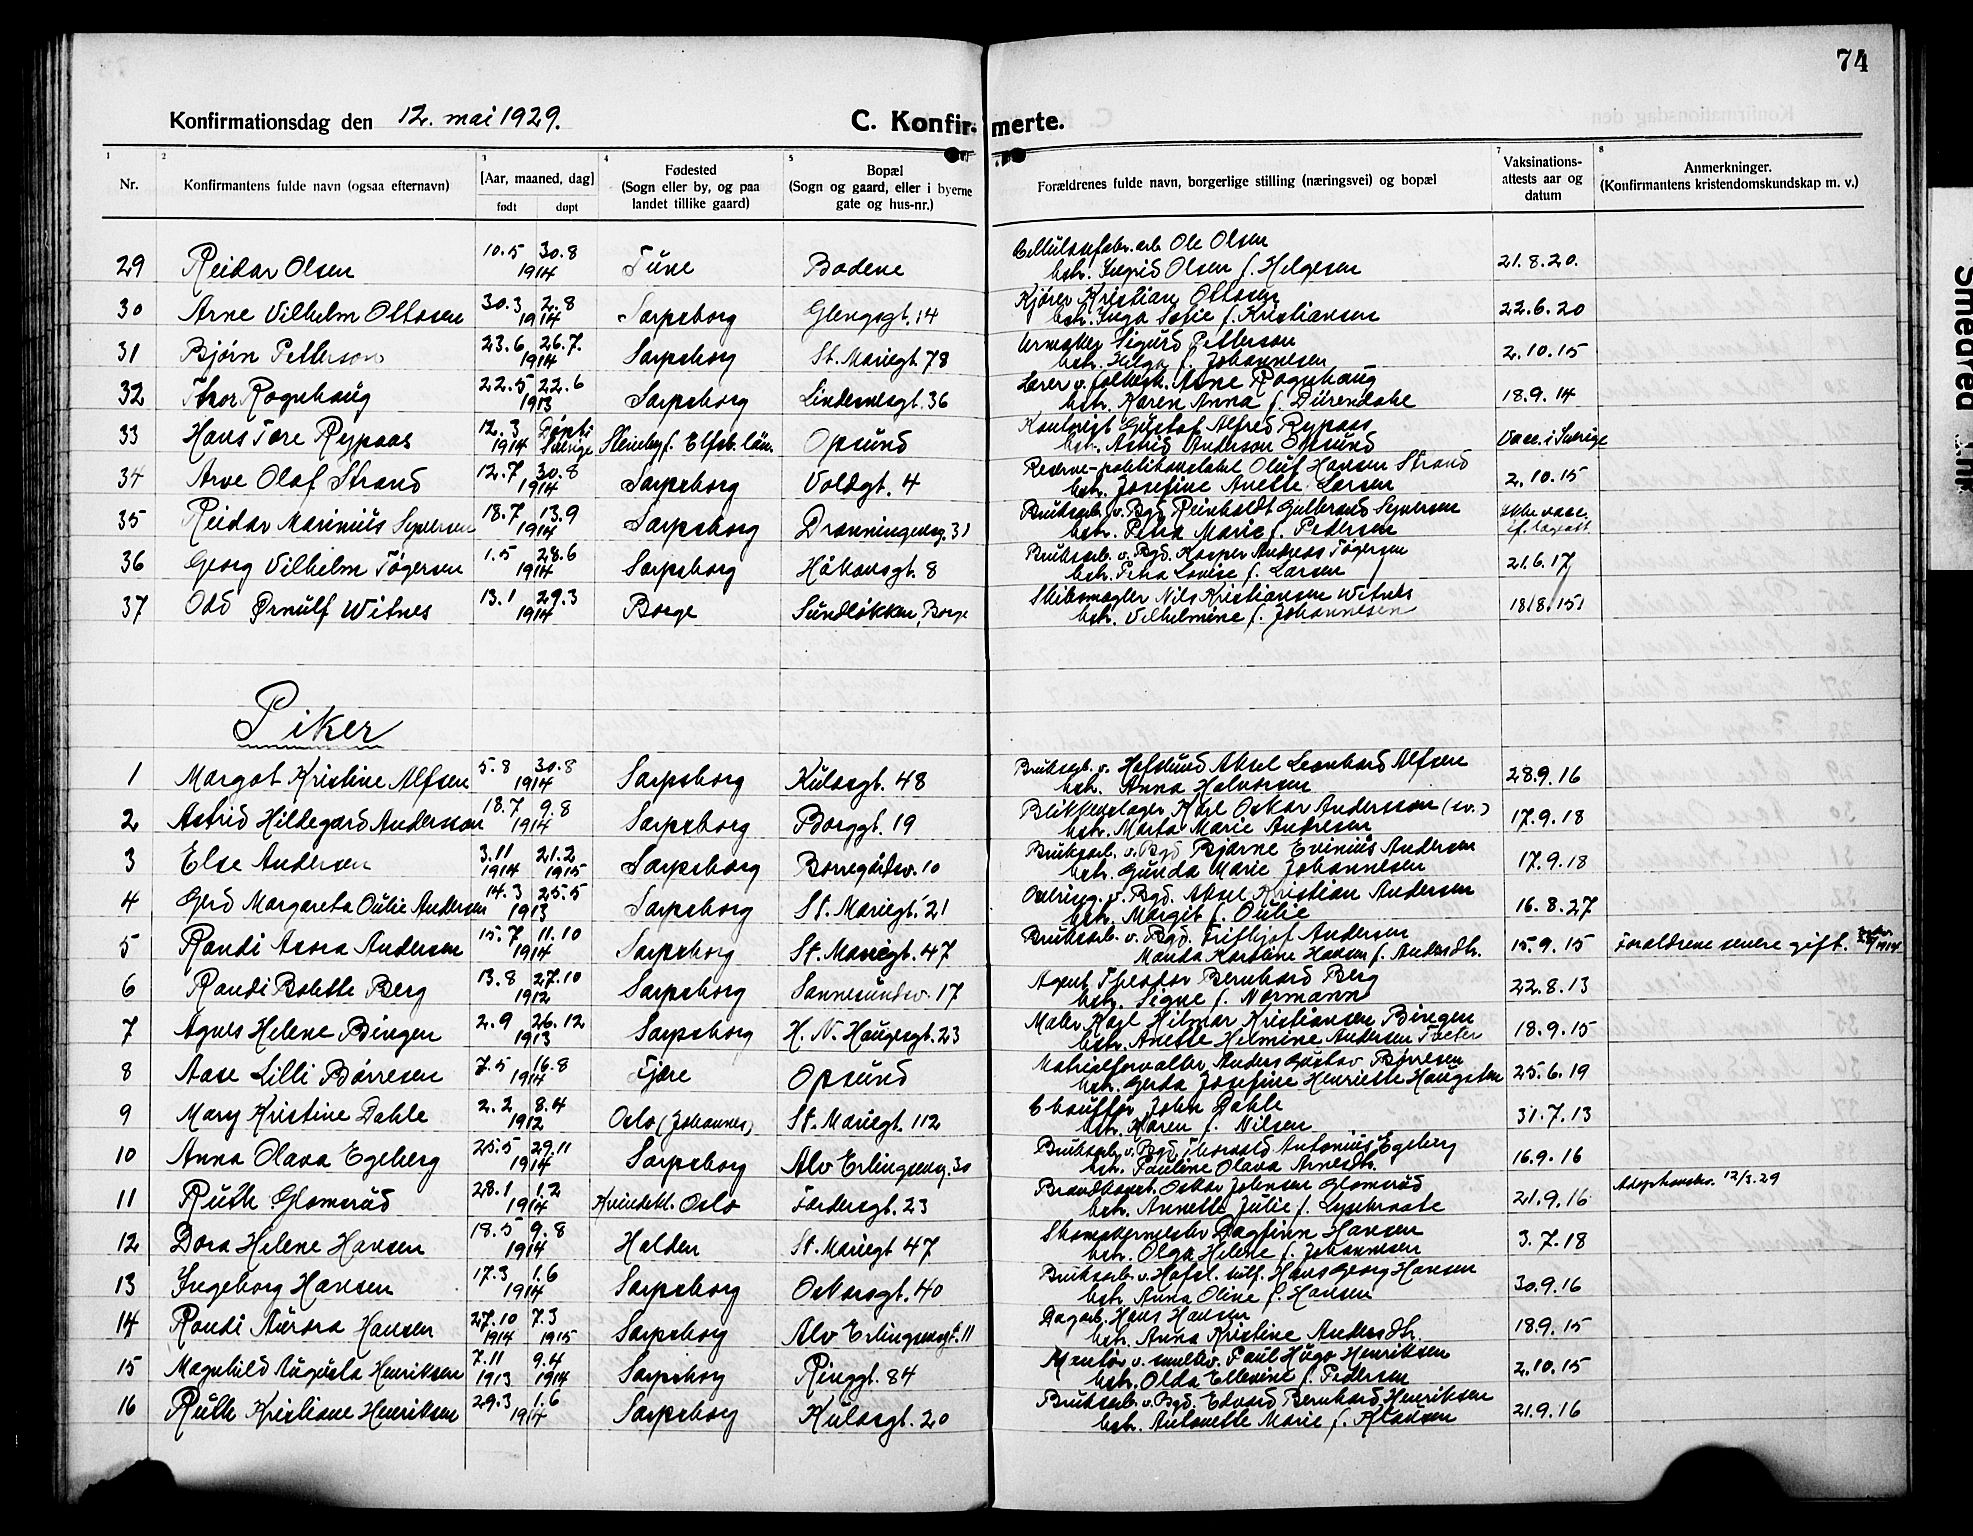 74
Konfirmationsdag den 12. mai 1929. C. Konfirmerte.
1 2 3 4 5 7 8
Nr. Konfirmantens fulde navn (ogsaa efternavn) [Aar, maaned, dag] født døpt Fødested (Sogn eller by, og paa landet tillike gaard) Bopæl (Sogn og gaard, eller i byerne gate og hus-nr.) Forældrenes fulde navn, borgerlige stilling (næringsvei) og bopæl Vaksinations-attests aar og datum Anmerkninger. (Konfirmantens kristendomskundskap m. v.)
29 Reidar Olsen 10.5 30.8 1914 Tune Bodene Cellulosefabr. arb. Ole Olsen
hstr. Ingrid Olsen f. Helgesen 21.8.20.
30 Arne Vilhelm Ottosen 30.3 2.8 1914 Sarpsborg Glengsgt. 14 Kjører Kristian Ottosen
hstr. Inga Sofie f. Kristiansen 22.6.20
31 Bjørn Petterson 23.6 26.7. 1914 Sarpsborg St. Mariegt. 78 Urmaker Sigurd Petterson
hstr. Helga f. Johannesen 2.10.15
32 Thor Rognhaug 22.5 22.6 1913 Sarpsborg Lindemosgt. 36 Lærer v. folkesk. Arne Rognhaug
hstr. Karen Anna f. 18.9.14
33 Hans Tore Rypaas 12.3 1914 Døpt i Sverige Steneby f. Elfsb. län. Opsund Gustaf Alfred Rypaas
hst. Astrid Anderson Opsund Vacc. i Sverige
34 Arve Olaf Strand 12.7 30.8 1914 Sarpsborg Voldgt. 4 Reserve-politikonstabel Oluf Hansen Strand
hstr. Josefine Anette Larsen 2.10.15
35 Reidar Marinius Syversen 18.7 13.9 1914 Sarpsborg Dronningensg. 31 Bruksarb. v. Bgd. Reinholdt Gulbrand Syversen
hstr. Petra Marie f. Pedersen Ikke vacc. if. lægeatt
36 Georg Vilhelm Tøgersen 1.5 28.6 1914 Sarpsborg Håkonsgt. 8 Bruksarb. v. Bgd. Kasper Andreas Tøgersen
hstr. Petra Lovise f. Larsen 21.6.17
37 Odd Ørnulf Witnes 13.1 29.3 1914 Borge Sundløkken, Borge Skibsmægler Nils Kristiansen Witnes
hstr. Vilhelmine f. Johannesen 18.8.15
Piker
1 Margot Kristine Alfsen 5.8 30.8 1914 Sarpsborg Kulåsgt. 48 Bruksarb. v. Hafslund Aksel Leonhard Alfsen
hstr. Anna Halvorsen 28.9.16
2 Astrid Hildegard Anderson 18.7 9.8 1914 Sarpsborg Borggt. 19 Blikkenslager Karl Oskar Andersson (sv.)
hstr. Marta Marie Andresen 17.9.18
3 Else Andersen 3.11 1914 21.2 1915 Sarpsborg Borregårdsv. 10 Bruksarb. v. Bgd Bjarne Evinius Andersen
hstr. Gunda Marie Johannesen 17.9.18
4 Gerd Margareta Oulie Andersen 14.3 25.5 1913 Sarpsborg St. Mariegt. 21 v. Bgd. Aksel Kristian Andersen
hstr. Margit f. Oulie 16.8.27
5 Randi Asora Andersen 15.7 11.10 1914 Sarpsborg St. Mariegt. 47 Bruksarb. v. Bgd. Fritjof Andersen
Manda Karoline Hansen f. Andersdtr. 15.9.15 Forældrene senere gift. 1914
6 Randi Bolette Berg 13.8 27.10 1912 Sarpsborg Sannesundsv. 17 Agent Theodor Bernhard Berg
hstr. Signe f. Normann 22.8.13
7 Agnes Helene Bingen 2.9 26.12 1913 Sarpsborg H. N. Haugesgt. 23 Maler Karl Hilmar Kristiansen Bingen
hstr. Anette Helmine Andersen 18.9.15
8 Aase Lilli Børresen 7.5 16.8 1914 Fjære Opsund Matrialforvalter Anders Gustav Børresen
hstr. Gerda Josefine Henriette Haugsten 25.6.19
9 Mary Kristine Dahle 2.2 8.4 1912 Oslo (Johannes) St. Mariegt. 112 Chauffør John Dahle
hstr. Karen f. Nilsen 31.7.13
10 Anna Olava Egeberg 25.5 29.11 1914 Sarpsborg Alv Erlingsensg. 30 Bruksarb. v. Bgd Thorvald Antonius Egeberg
hstr. Pauline Olava Arnesdtr. 16.9.16
11 Ruth Glomsrud 28.1 1.2 1914 Kvindekl. Oslo Færdersgt. 23 Brandkonst. Oskar Johnsen Glomsrud
hstr. Annette Julie f. 21.9.16 Adoptionsbr. 12/3.29
12 Dora Helene Hansen 18.5 9.8 1914 Halden St. Mariegt 47 Skomakermester Dagfinn Hansen
hstr. Olga Helene f. Johannesen 3.7.18
13 Ingeborg Hansen 17.3 1.6 1914 Sarpsborg Oskarsgt. 40 Bruksarb. v. Hafsl. sulf. Hans Georg Hansen
hstr. Anna Oline f. Hansen 30.9.16
14 Randi Aurora Hansen 27.10 1914 7.3 1915 Sarpsborg Alv Erlingsensgt. 11 Dagarb. Hans Hansen
hstr. Anna Kristine Andersdtr. 18.9.15
15 Magnhild Augusta Henriksen 7.11 1913 9.4 1914 Sarpsborg Ringgt. 84 Mentør v. smeltev. Paul Hugo Henriksen
hstr. Olda Ellevine f. Pedersen 2.10.15
16 Ruth Kristiane Henriksen 29.3 1.6 1914 Sarpsborg Kulåsgt. 20 Bruksarb. v. Bgd. Edvard Bernhard Henriksen
hstr. Antonette Marie f. Kladsen 21.9.16